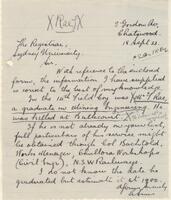 X Recd X
2 Gordon Av.
Chatswood.
18 Sept 33.
The Registrar,
Sydney University
Sir,
With reference to the enclosed
form, the information I have supplied
is correct to the best of my knowledge.
In the 10th Field Coy was
a graduate in Mining Engineering. He
was killed at Bullecourt.
If he is not already on your list,
full particulars of his services might
be obtained through Col Bachtold,
Works Manager, Chullora Workshops
(Civil Engr), N.S.W. Railways.
I do not know the date he
graduated but estimate it at 1905
Yours sincerely